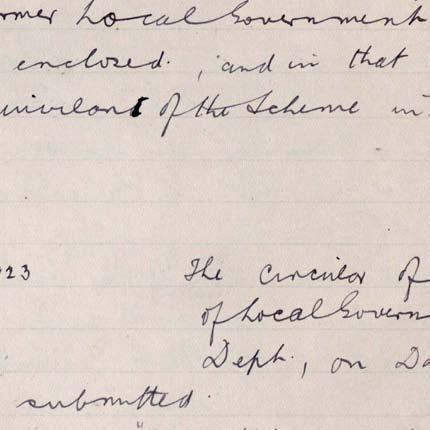 rmer Local Government
enclosed. , and in that
of the Scheme in
23 The circular of
of Local Govern
Dept., on Da
submitted.